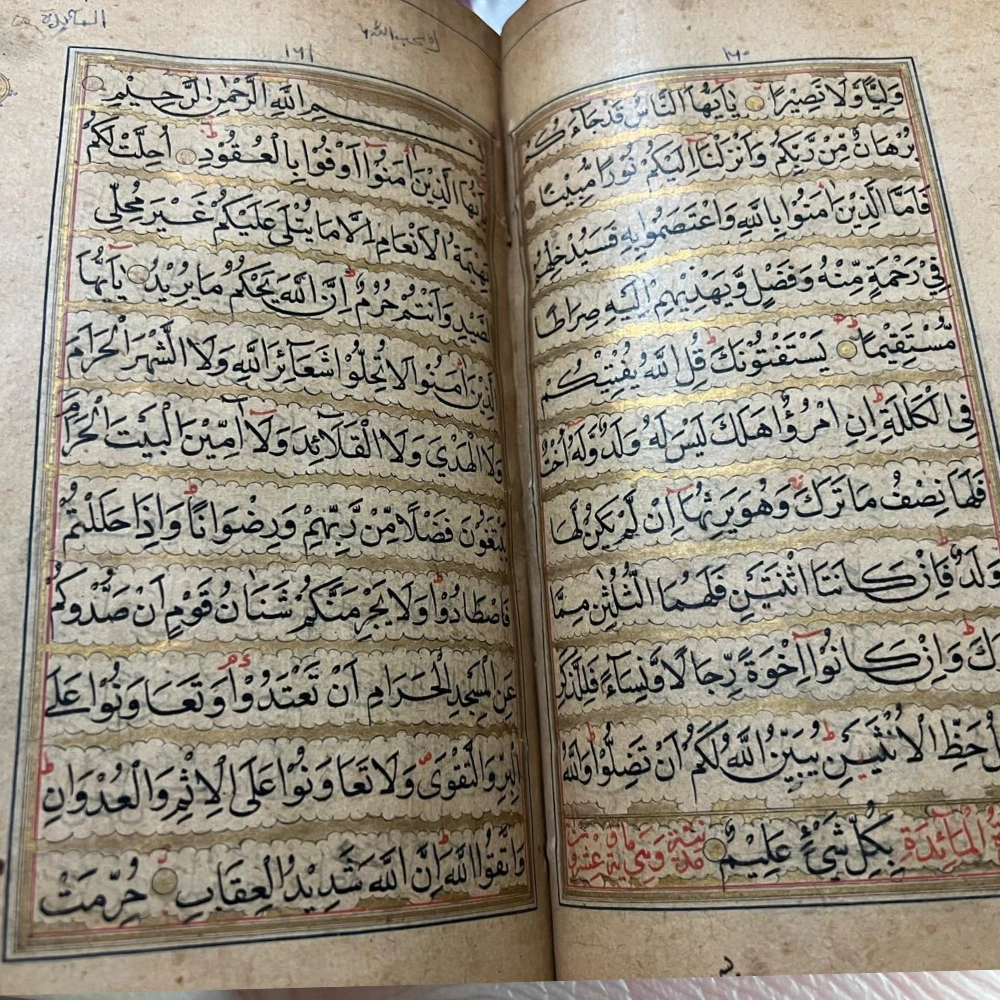 ١٦٠
وَلِيًّا وَلَا نَصِيرًا يَا أَيُّهَا النَّاسُ قَدْ جَاءَكُمْ
بُرْهَانٌ مِّنْ رَّبِّكُمْ وَأَنْزَلْنَا إِلَيْكُمْ نُورًا مُّبِينًا
فَأَمَّا الَّذِينَ اٰمَنُوا بِاللَّهِ وَاعْتَصَمُوا بِهِ فَسَيُدْخِلُهُمْ
فِي رَحْمَةٍ مِّنْهُ وَفَضْلٍ وَّيَهْدِيهِمْ إِلَيْهِ صِرَاطًا
مُّسْتَقِيمًا يَسْتَفْتُونَكَ قُلِ اللَّهُ يُفْتِيكُمْ
فِي الْكَلٰلَةِ إِنِ امْرُؤٌا هَلَكَ لَيْسَ لَهُ وَلَدٌ وَّلَهُ أُخْتٌ
فَلَهَا نِصْفُ مَا تَرَكَ وَهُوَ يَرِثُهَا إِنْ لَّمْ يَكُنْ لَّهَا
وَلَدٌ فَإِنْ كَانَتَا اثْنَتَيْنِ فَلَهُمَا الثُّلُثٰنِ مِمَّا
تَرَكَ وَإِنْ كَانُوا إِخْوَةً رِّجَالًا وَّنِسَاءً فَلِلذَّكَرِ
مِثْلُ حَظِّ الْأُنْثَيَيْنِ يُبَيِّنُ اللَّهُ لَكُمْ أَنْ تَضِلُّوا وَاللَّهُ
بِكُلِّ شَيْءٍ عَلِيمٌ
الْمَائِدَةِ
١٦١
المائدة
بِسْمِ اللَّهِ الرَّحْمٰنِ الرَّحِيمِ
يَا أَيُّهَا الَّذِينَ اٰمَنُوا أَوْفُوا بِالْعُقُودِ أُحِلَّتْ لَكُمْ
بَهِيمَةُ الْأَنْعَامِ إِلَّا مَا يُتْلَى عَلَيْكُمْ غَيْرَ مُحِلِّي
الصَّيْدِ وَأَنْتُمْ حُرُمٌ إِنَّ اللَّهَ يَحْكُمُ مَا يُرِيدُ يَا أَيُّهَا
الَّذِينَ اٰمَنُوا لَا تُحِلُّوا شَعَائِرَ اللَّهِ وَلَا الشَّهْرَ الْحَرَامَ
وَلَا الْهَدْيَ وَلَا الْقَلَائِدَ وَلَا اٰمِّينَ الْبَيْتَ الْحَرَامَ
يَبْتَغُونَ فَضْلًا مِّنْ رَّبِّهِمْ وَرِضْوَانًا وَإِذَا حَلَلْتُمْ
فَاصْطَادُوا وَلَا يَجْرِمَنَّكُمْ شَنَاٰنُ قَوْمٍ أَنْ صَدُّوكُمْ
عَنِ الْمَسْجِدِ الْحَرَامِ أَنْ تَعْتَدُوا وَتَعَاوَنُوا عَلَى
الْبِرِّ وَالتَّقْوَى وَلَا تَعَاوَنُوا عَلَى الْإِثْمِ وَالْعُدْوَانِ
وَاتَّقُوا اللَّهَ إِنَّ اللَّهَ شَدِيدُ الْعِقَابِ حُرِّمَتْ